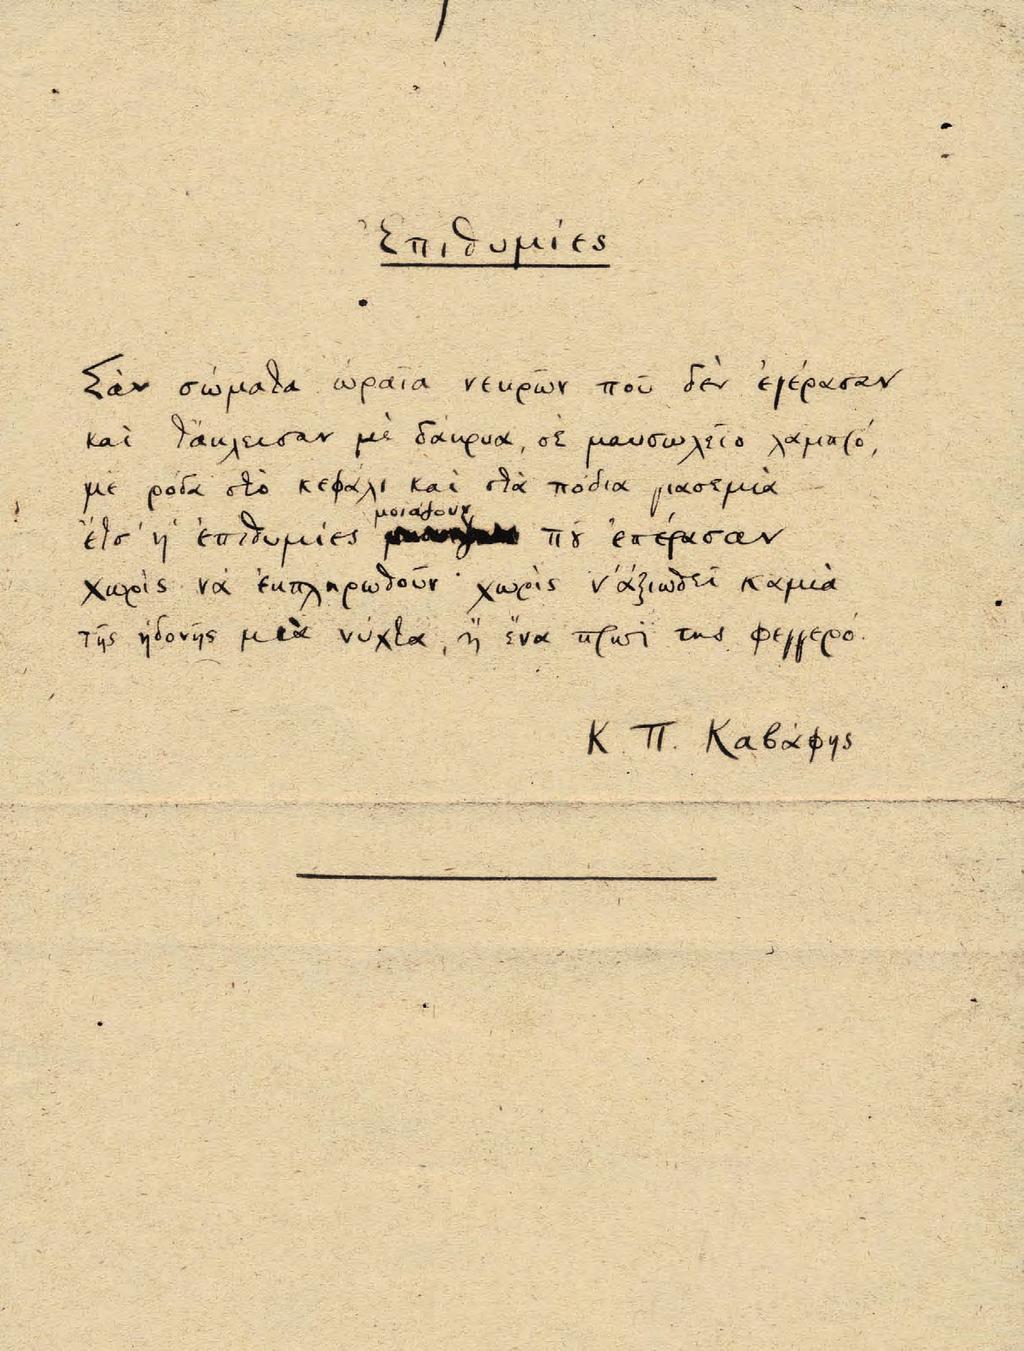 Ἐπιθυμίες
Σὰν σώματα ὡραῖα νεκρῶν ποῦ δὲν ἐγέρασαν
καὶ τἄκλεισαν μὲ δάκρυα, σὲ μαυσωλεῖο λαμπρό,
μὲ ρόδα στὸ κεφάλι καὶ στὰ πόδια γιασεμιὰ —
μοιάζουν
ἔτσ' ἡ ἐπιθυμίες ποῦ ἐπέρασαν
χωρὶς νὰ ἐκπληρωθοῦν· χωρὶς ν' ἀξιωθεῖ καμιὰ
τῆς ἡδονῆς μιὰ νύχτα, ἢ ἕνα πρωῒ της φεγγερό.
Κ. Π. Καβάφης